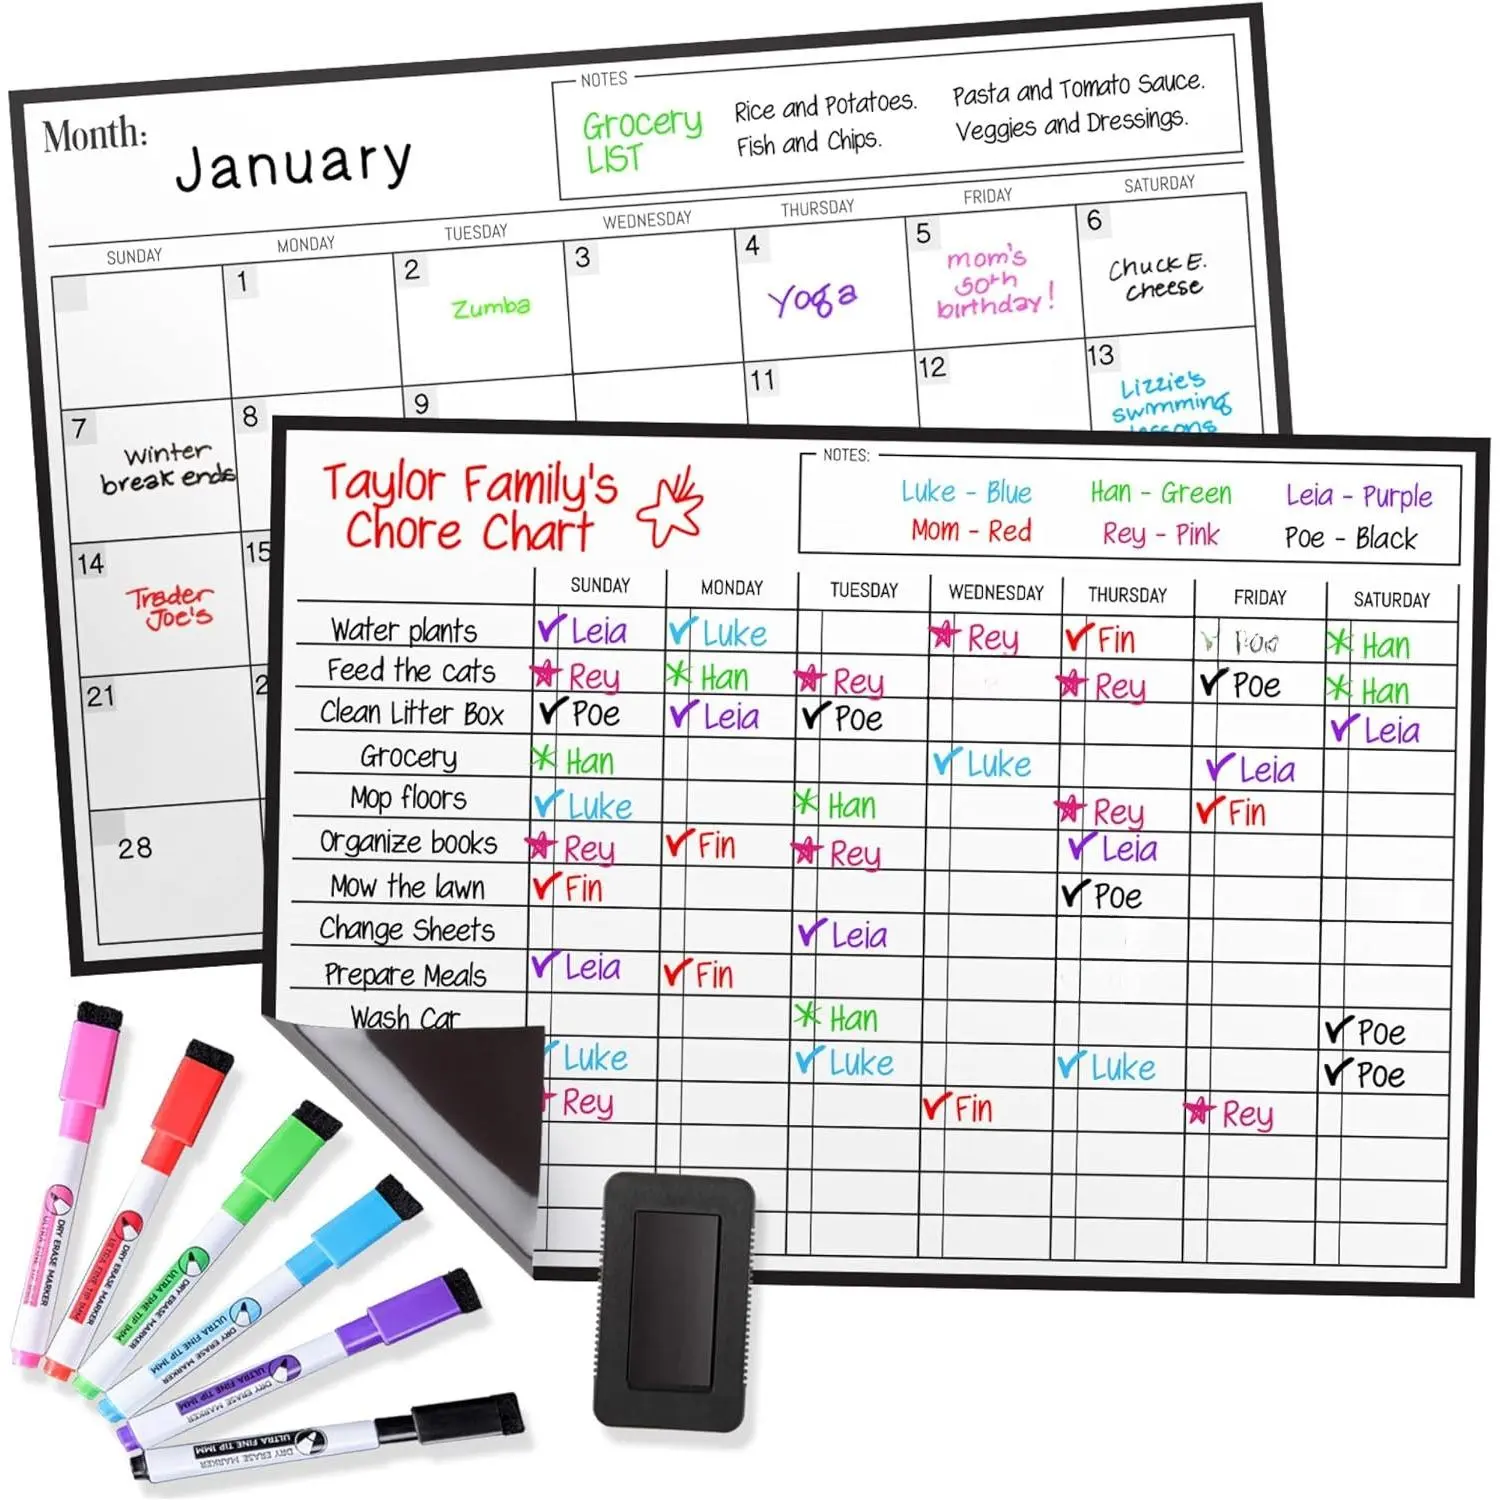 Month:
January
NOTES
Grocery
LIST
Rice and Potatoes.
Fish and Chips.
Pasta and Tomato Sauce.
Veggies and Dressings.
SUNDAY MONDAY TUESDAY WEDNESDAY THURSDAY FRIDAY SATURDAY
1 2 3 4 5 6
Zumba
Yoga
mom's
50th
birthday!
Chuck E.
cheese
7 8 9 11 12 13
Winter
break ends
Lizzie's
swmming
lessons
14 15
Trader
Joe's
21 2
28
Taylor Family's
Chore Chart
NOTES:
Luke - Blue Han - Green Leia - Purple
Mom - Red Rey - Pink Poe - Black
SUNDAY MONDAY TUESDAY WEDNESDAY THURSDAY FRIDAY SATURDAY
Water plants Leia Luke Rey Fin Poe Han
Feed the cats Rey Han Rey Rey Poe Han
Clean Litter Box Poe Leia Poe Leia
Grocery Han Luke Leia
Mop floors Luke Han Rey Fin
Organize books Rey Fin Rey Leia
Mow the lawn Fin Poe
Change Sheets Leia
Prepare Meals Leia Fin
Wash Car Han Poe
Luke Luke Luke Poe
Rey Fin Rey
DRY ERASE MARKER
ULTRA FINE TIP 1MM
DRY ERASE MARKER
ULTRA FINE TIP 1MM
DRY ERASE MARKER
ULTRA FINE TIP 1MM
DRY ERASE MARKER
ULTRA FINE TIP 1MM
DRY ERASE MARKER
ULTRA FINE TIP 1MM
DRY ERASE MARKER
ULTRA FINE TIP 1MM